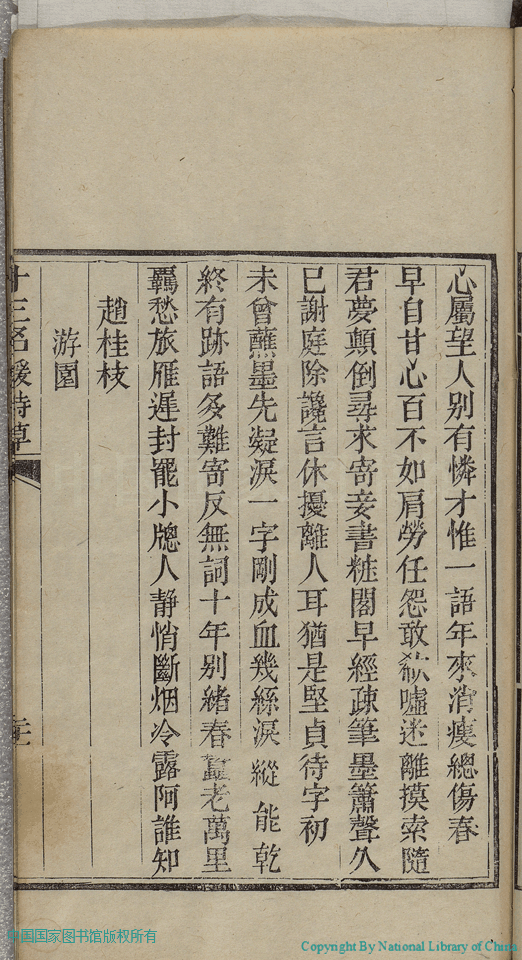 心屬望人別有憐才惟一語年來消瘦總傷春
早自甘心百不如肩勞任怨敢欷噓迷離摸索隨
君夢顛倒尋求寄妾書粧閣早經疎筆墨簫聲久
已謝庭除讒言休擾離人耳猶是堅貞待字初
未曾蘸墨先凝淚一字剛成血幾絲淚縱能乾
終有跡語多難寄反無詞十年別緒春蠶老萬里
羈愁旅雁遲封罷小牕人静悄斷烟冷露阿誰知
趙桂枝
游園
十三名媛詩草
中国国家图书馆版权所有
Copyright By National Library of China